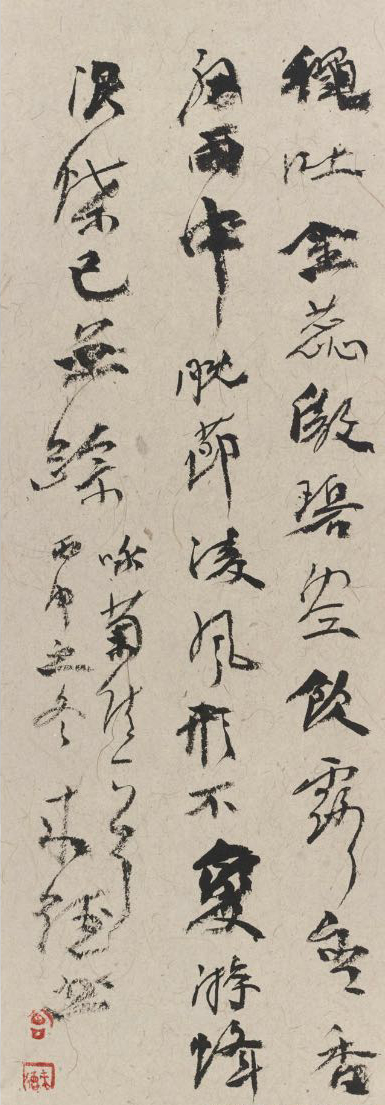 吐金蕊傲碧空飲露香
烟雨中晚節凌風形不變游蜂
浪蝶已無蹤
咏菊
丙申立冬